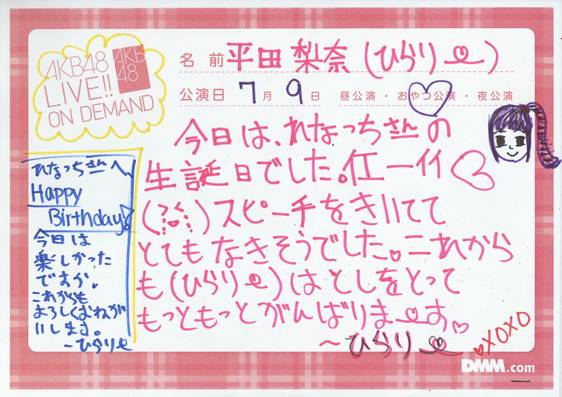 AKB48
LIVE!!
ON DEMAND
AKB
48
名前 平田梨奈(ひらりー)
公演日 7月9日 昼公演・おやつ公演・夜公演
今日は、れなっちさんの
生誕日でした。
スピーチをきいてて
とてもなきそうでした。これから
も(ひらりー)はとしをとって
もっともっとがんばりまーす
~ひらりー
XOXO
れなっちさんへ
Happy
Birthday!
今日は
楽しかった
ですか。
これからも
よろしくおねが
いします。
~ひらりー
DMM.com